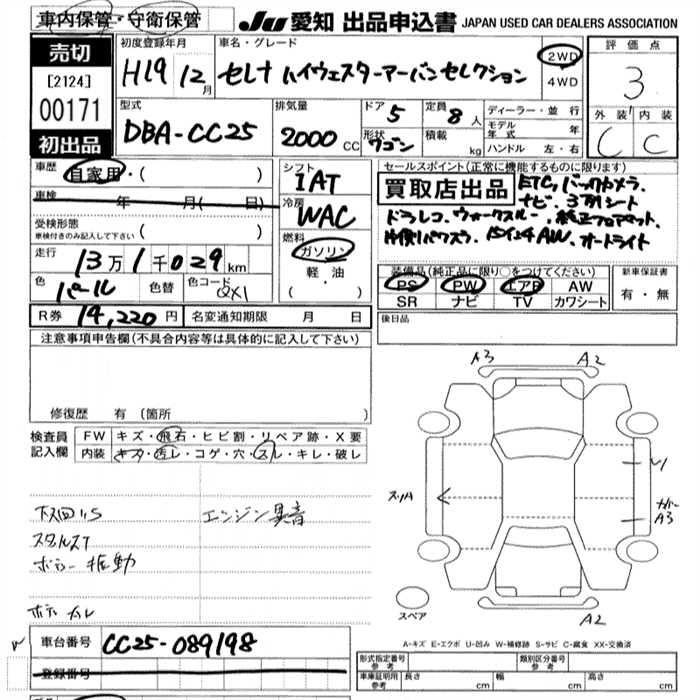 車内保管・守衛保管
JU 愛知 出品申込書 JAPAN USED CAR DEALERS ASSOCIATION
売切
[2124]
00171
初出品
初度登録年月
H19 12月
車名・グレード
セレナ ハイウェスターアーバンセレクション
2WD
4WD
評価点
3
外装 内装
C C
型式
DBA-CC25
排気量
2000 CC
ドア 5
形状 ワゴン
定員 8人
積載 kg
ディーラー・並行
モデル年式 年
ハンドル 左・右
車歴 自家用・( )
車検 年 月( 日)
受検形態
車検付きのみ記入して下さい ( )
走行
13万1千029km
色 パール 色替 色コード QX1
シフト
IAT
冷房
WAC
燃料
ガソリン
軽・油
( ・ )
セールスポイント(正常に機能するものに限ります)
買取店出品
ETC、バックカメラ、
ナビ、3列シート
ドラレコ、ウォークスルー、純正フロアマット、
片側パワスラ、15インチAW、オートライト
装備品(純正品に限り〇をつけてください)
PS PW エアB AW
SR ナビ TV カワシート
新車保証書
有・無
R券 14,220円 名変通知期限 月 日
後日品
注意事項申告欄(不具合内容等は具体的に記入して下さい)
修復歴 有(箇所
検査員記入欄
FW キズ・飛石・ヒビ割・リペア跡・X要
内装 キズ・汚レ・コゲ・穴・スレ・キレ・破レ
下回りS
エンジン異音
ボデー振動
A3 A2
U1
A3
A2
スペア
A-キズ E-エクボ U-凹み W-補修跡 S-サビ C-腐食 XX-交換済
車台番号 CC25-089198
登録番号
形式指定番号 参考
類別区分番号 参考
車庫証明用 参考 長さ cm 幅 cm 高さ cm